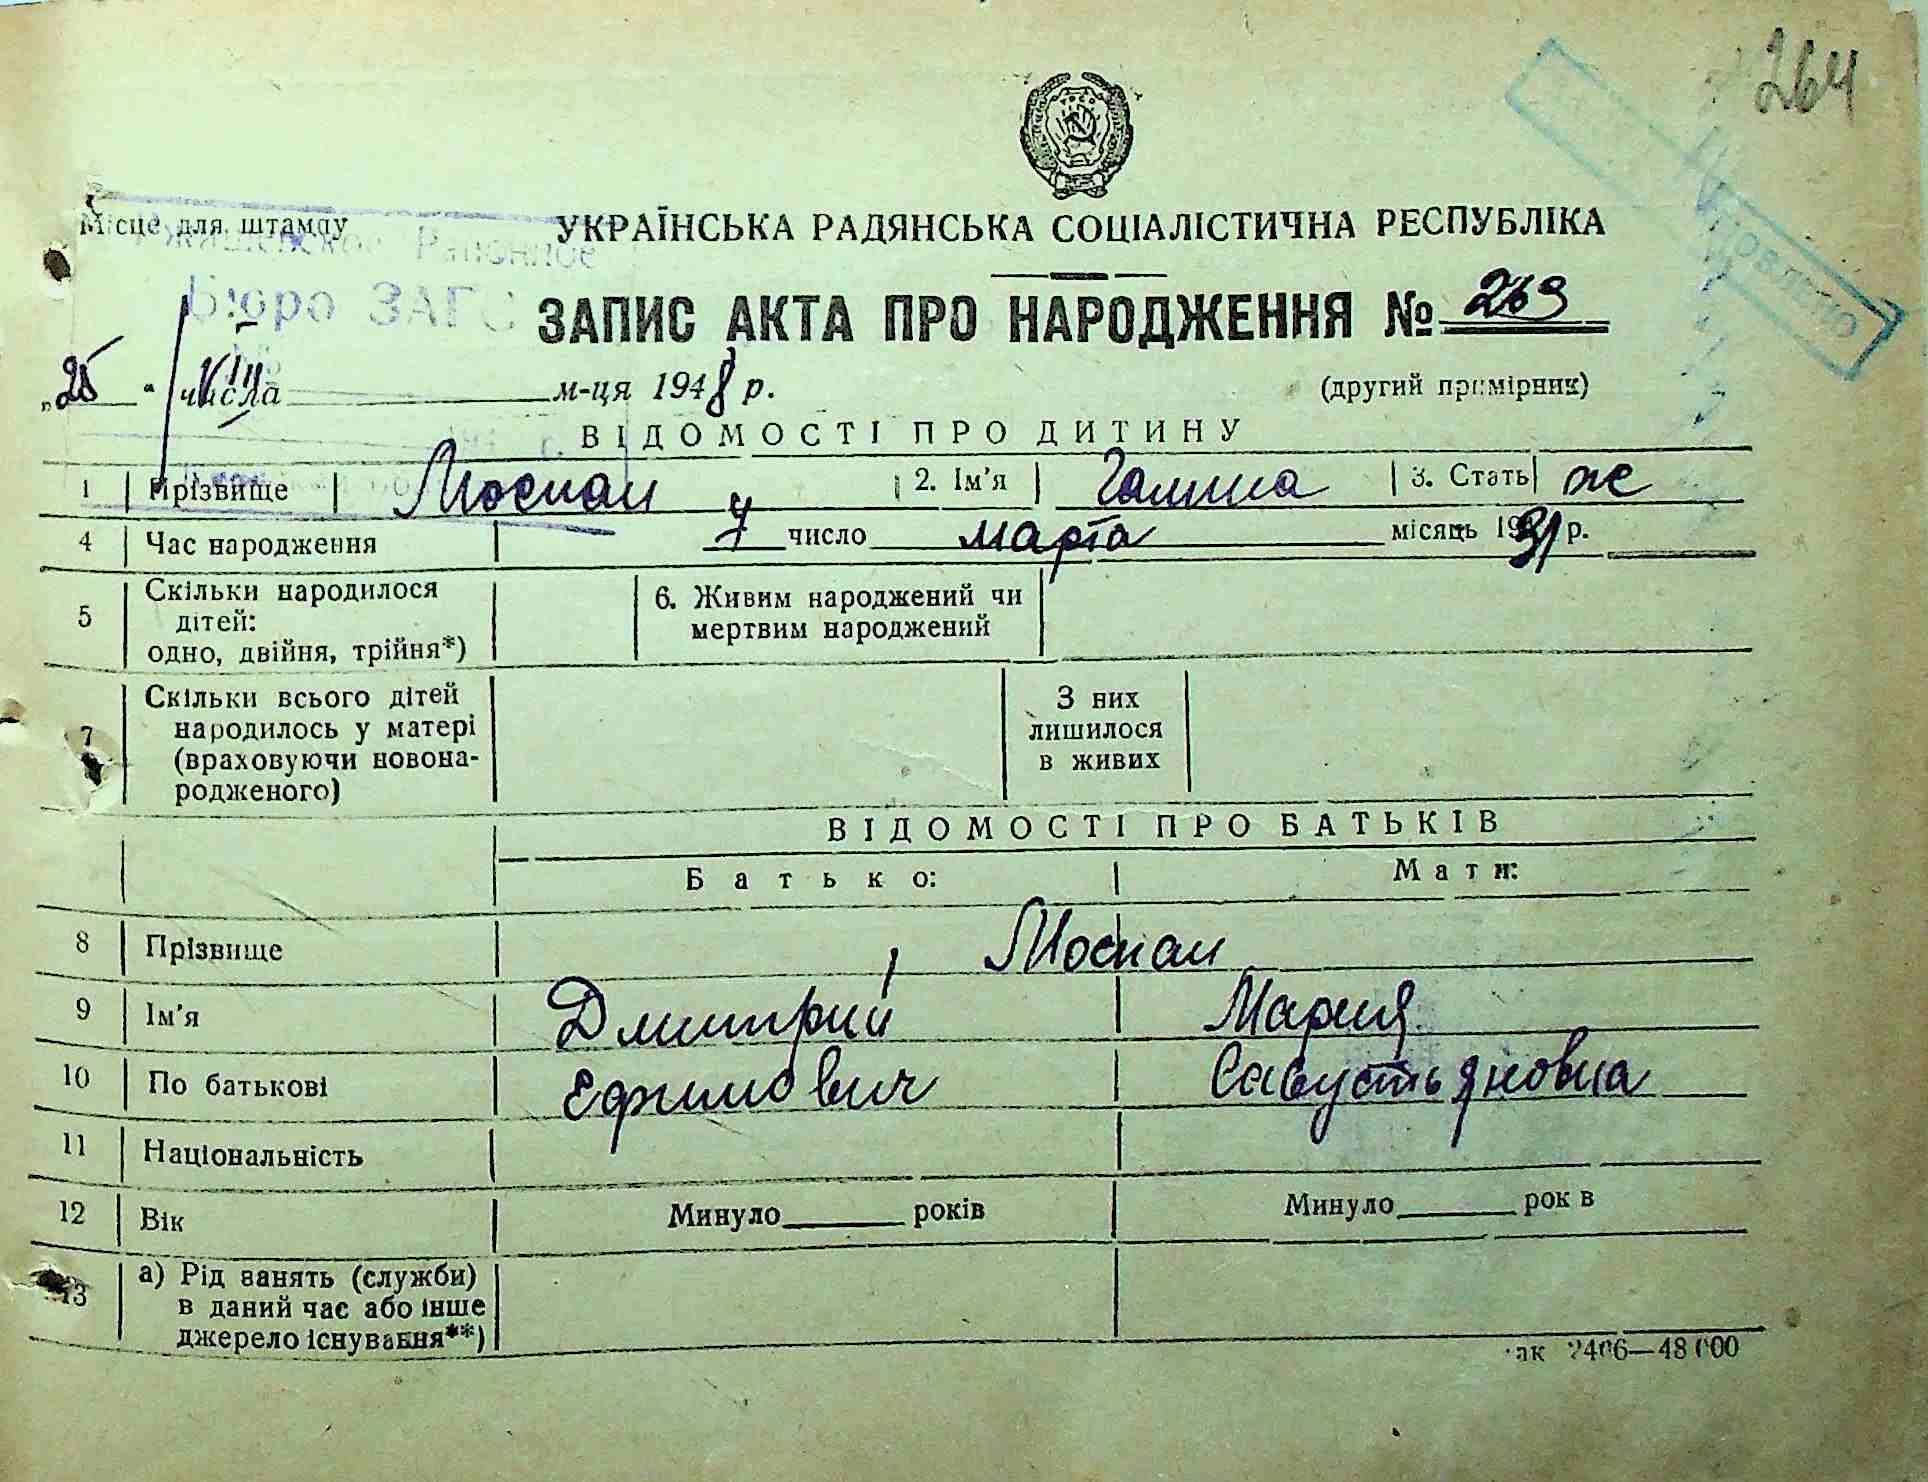 264
Місце для штампу
УКРАЇНСЬКА РАДЯНСЬКА СОЦІАЛІСТИЧНА РЕСПУБЛІКА
Районное
Бюро ЗАГС
ЗАПИС АКТА ПРО НАРОДЖЕННЯ № 269
„25" числа VIII м-ця 1948 р.
(другий примірник)
ВІДОМОСТІ ПРО ДИТИНУ
1 Прізвище Моспан 2. Ім'я Галина 3. Стать ж
4 Час народження 7 число марта місяць 1931 р.
5 Скільки народилося дітей: одно, двійня, трійня*)
6. Живим народжений чи мертвим народжений
7 Скільки всього дітей народилось у матері (враховуючи новона-родженого)
З них лишилося в живих
ВІДОМОСТІ ПРО БАТЬКІВ
Батько: Мати:
8 Прізвище Моспан
9 Ім'я Дмитрий Мария
10 По батькові Ефимович Савустьяновна
11 Національність
12 Вік Минуло ______ років Минуло ______ рок в
13 а) Рід занять (служби) в даний час або інше джерело існування**)
ак 2406—48 000